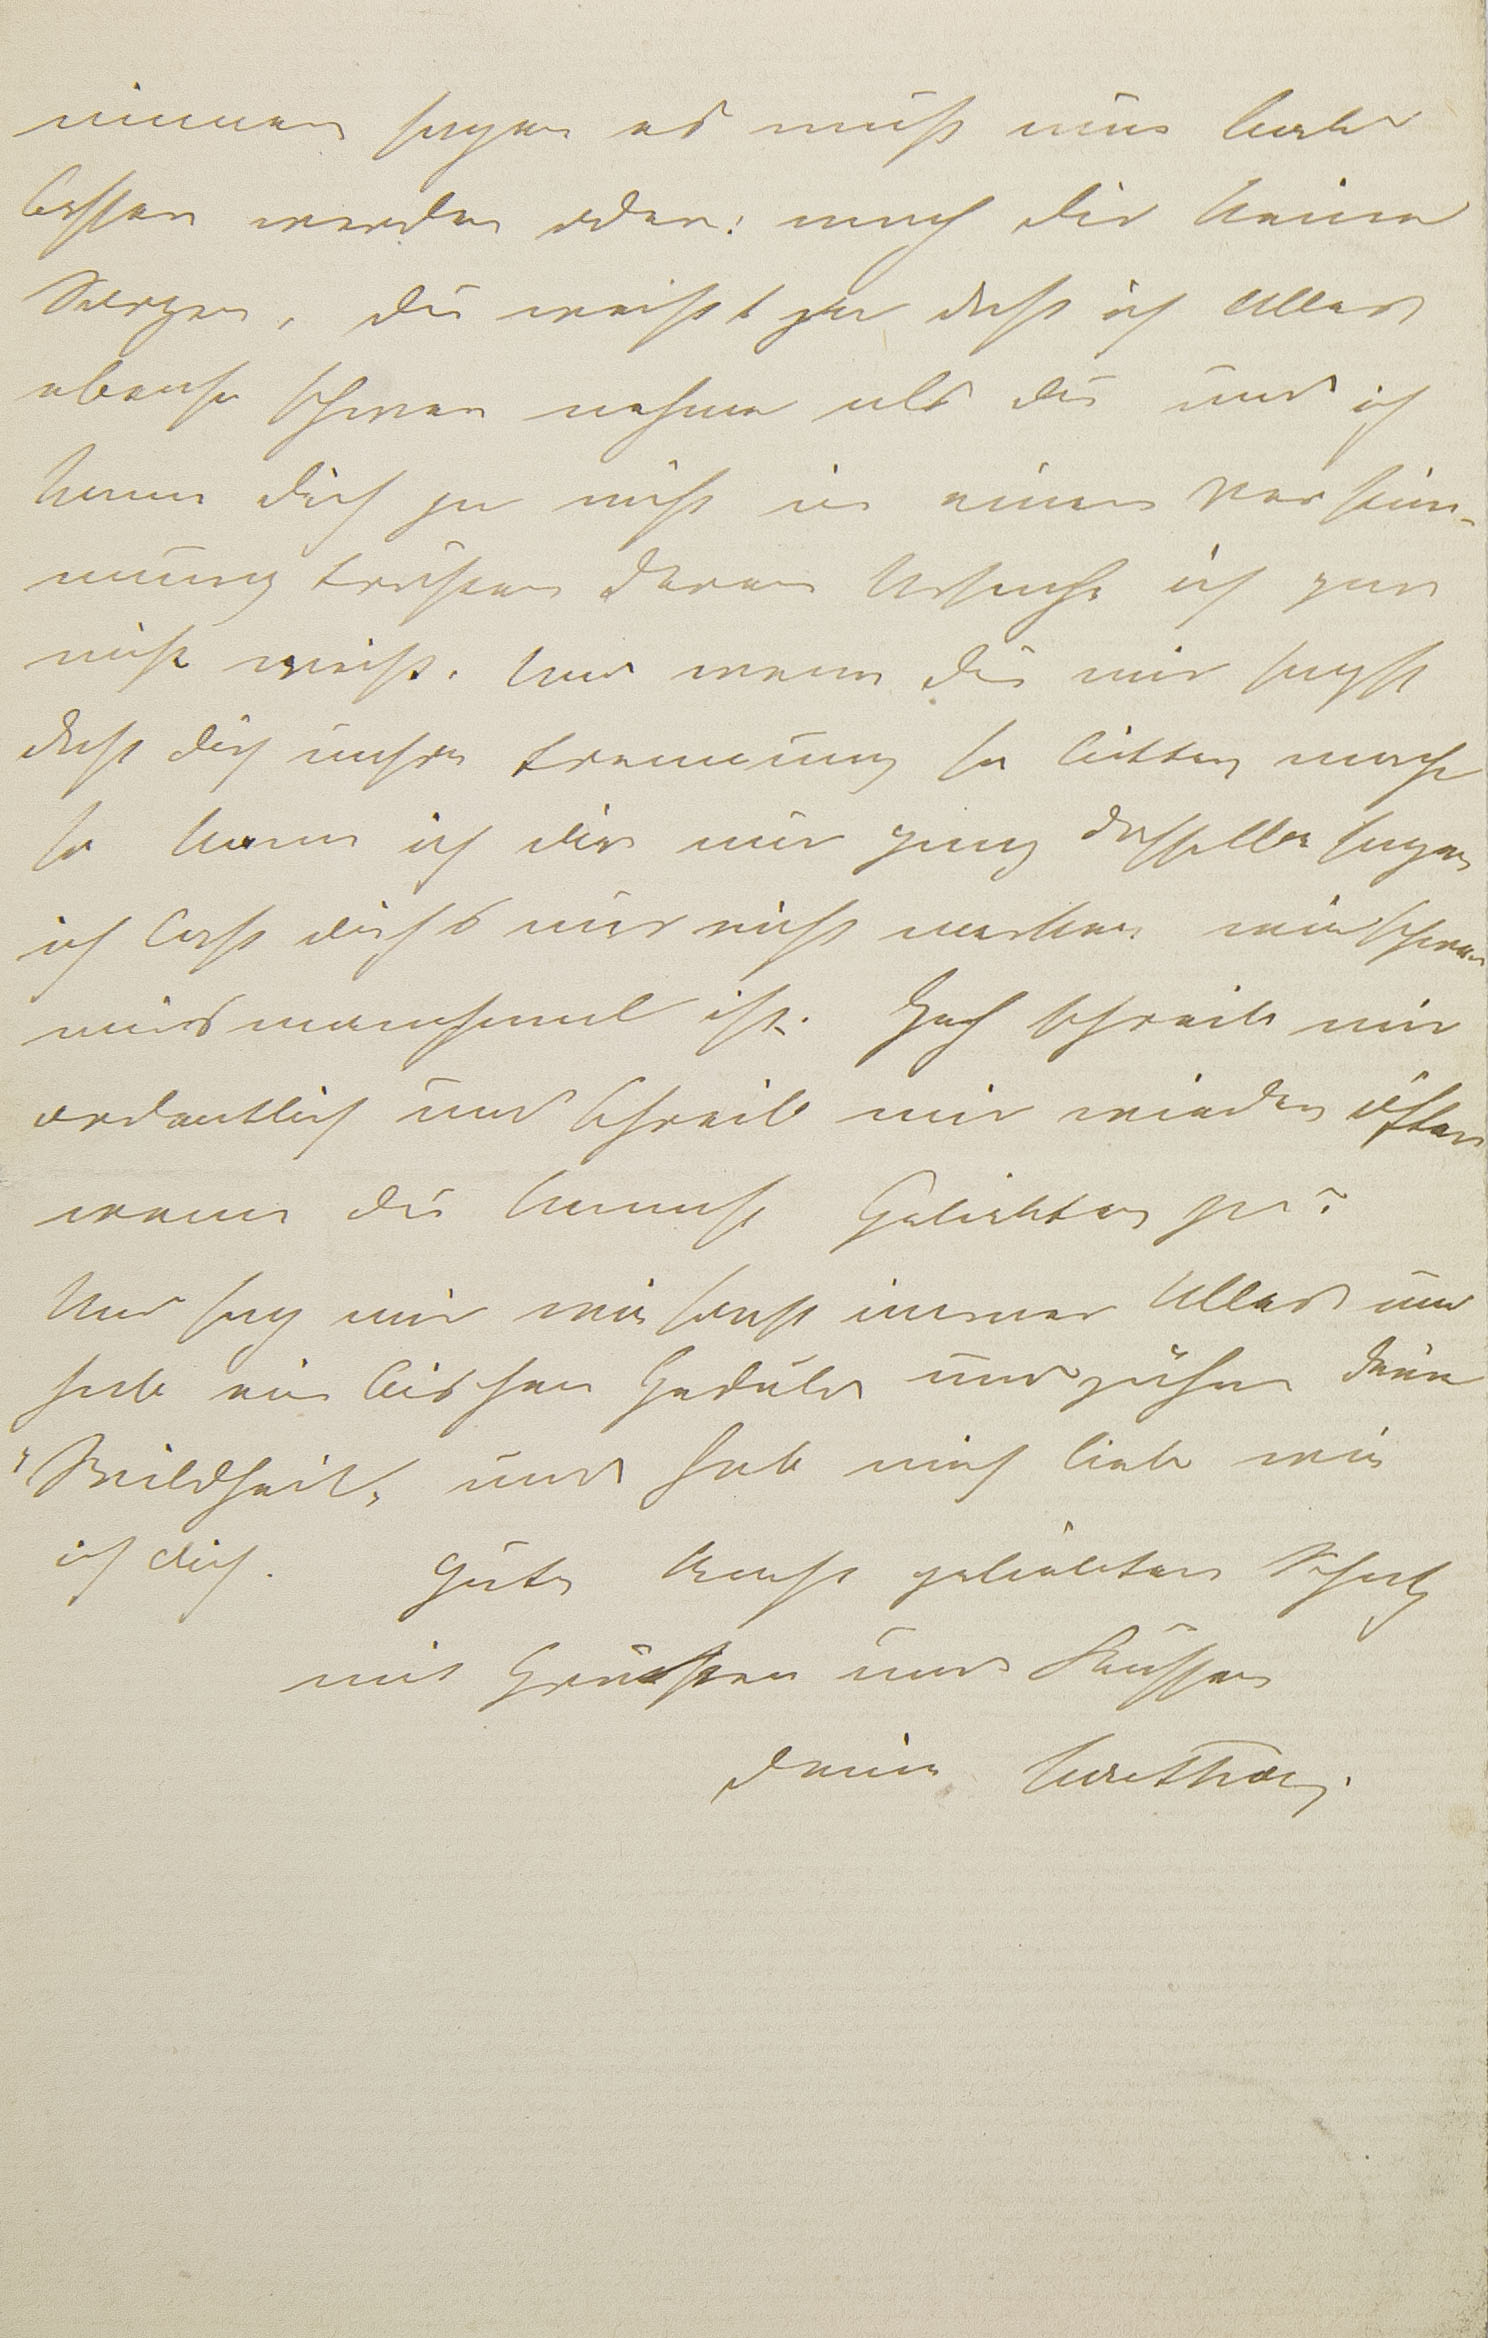 immer sagen es muß nun bald
besser werden oder: mach dir keine
Sorgen, du weißt ja daß ich Alles
ebenso schwer nehme als du und ich
kann dich ja nicht in einer Verstim-
mung trösten deren Ursache ich gar
nicht weiß. Und wenn du mir sagst
daß dich unsre Trennung so bitter macht
so kann ich dir nur ganz dasselbe sagen
ich lass dichs nur nicht merken wie schwer
mirs manchmal ist. Geh schreib mir
ordentlich und schreib mir wieder öfter
wenn du kannst Geliebter ja?
Und sag mir wie sonst immer Alles und
hab ein bischen Geduld und zähme deine
"Wildheit" und hab mich lieb wie
ich dich. Gute Nacht geliebter Schatz
mit Grüßen und Küssen
deine